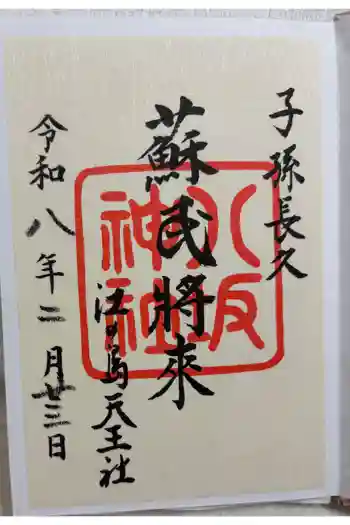 子孫長久
蘇民将來
八坂神社
江ノ島天王社
令和八年二月廿三日